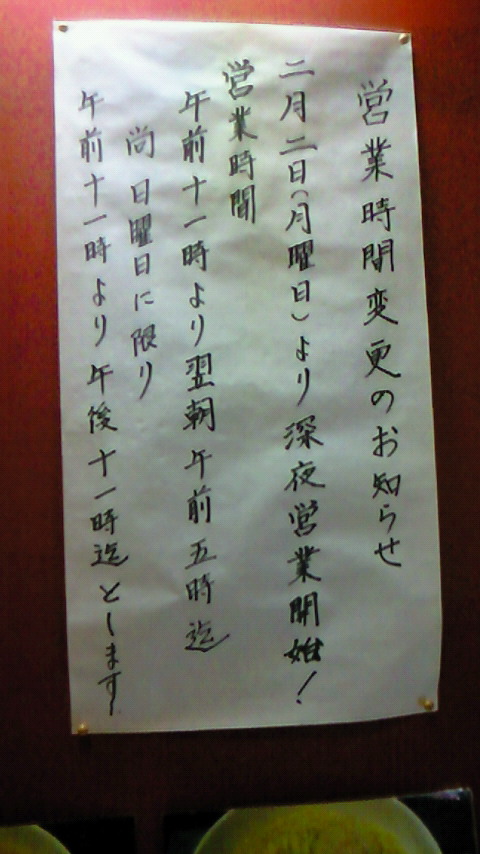 営業時間変更のお知らせ
二月二日(月曜日)より深夜営業開始!
営業時間
午前十一時より翌朝午前五時迄
尚日曜日に限り
午前十一時より午後十一時迄とします